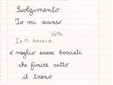 Svolgimento
Io mi scanso
Volta
Io ti bacio
è meglio essere baciati
che finire sotto
il treno